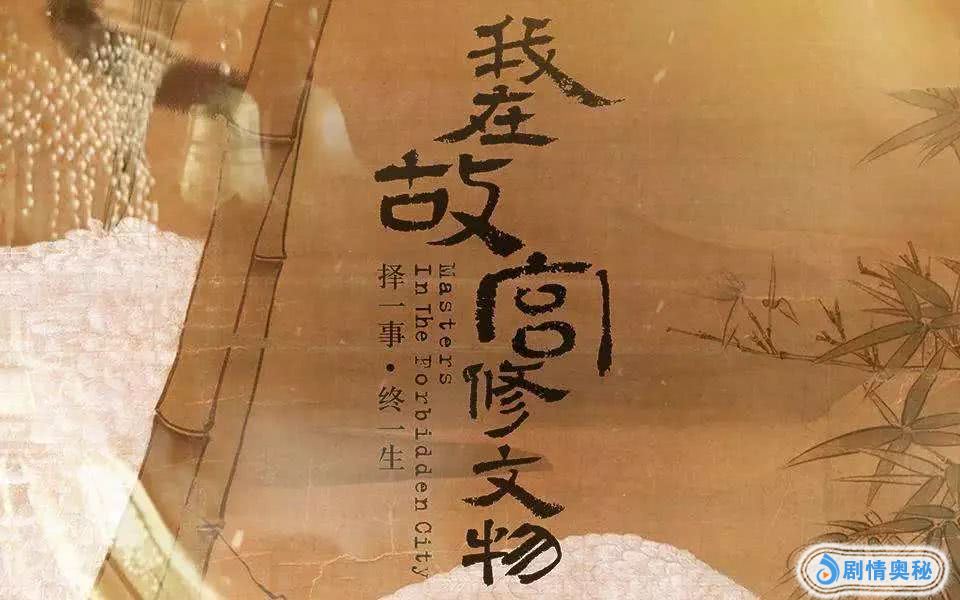 我在故宫修文物
Masters
In The Forbidden City
择一事·终一生
剧情奥秘